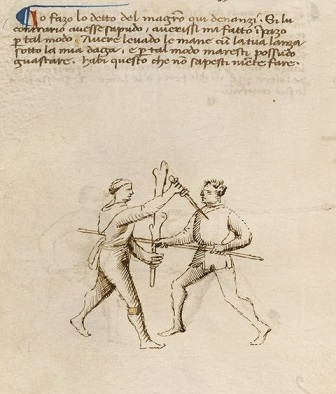 Io fazo lo detto del magro qui denanzi. Si lu
contrario avesse sapudo, averessi ma fatto ipazo
p tal modo. Avere levado le mane cū la tua lanza
sotto la mia daga, e p tal modo maresti possudo
guastare. habi questo che nō sapesti niēte fare.